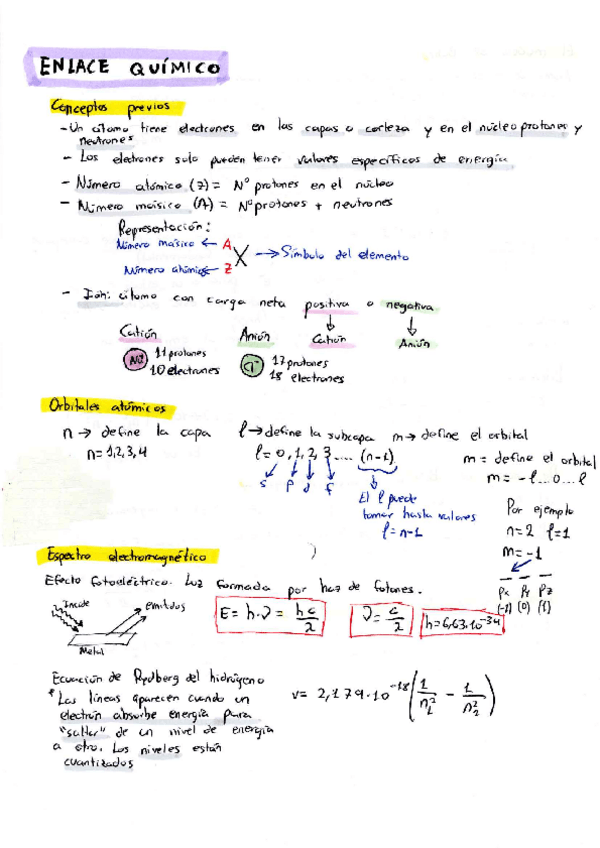 ENLACE QUÍMICO
Conceptos previos
- Un átomo tiene electrones en las capas o corteza y en el núcleo protones y
neutrones
- Los electrones solo pueden tener valores específicos de energía
- Número atómico (Z) = Nº protones en el núcleo
- Número másico (A) = Nº protones + neutrones
Representación:
Número másico ← A
X → Símbolo del elemento
Número atómico ← Z
- Ion: átomo con carga neta positiva o negativa
Catión Anión Catión Anión
Na⁺ 11 protones
10 electrones
Cl⁻ 17 protones
18 electrones
Orbitales atómicos
n → define la capa l → define la subcapa m → define el orbital
n = 1, 2, 3, 4 l = 0, 1, 2, 3 .... (n-1) m = define el orbital
s p d f m = -l...0...l
El l puede
tomar hasta valores
l = n-1
Por ejemplo
n=2 l=1
m=-1
Px Py Pz
(-1) (0) (1)
Espectro electromagnético
Efecto fotoeléctrico. Luz formada por haz de fotones.
Incide emitidos
Metal
E = h·ν = hc/λ ν = c/λ h = 6,63·10⁻³⁴
Ecuación de Rydberg del hidrógeno
* Las líneas aparecen cuando un
electrón absorbe energía para
"saltar" de un nivel de energía
a otro. Los niveles están
cuantizados
v = 2,179·10⁻¹⁸ (1/n₁² - 1/n₂²)